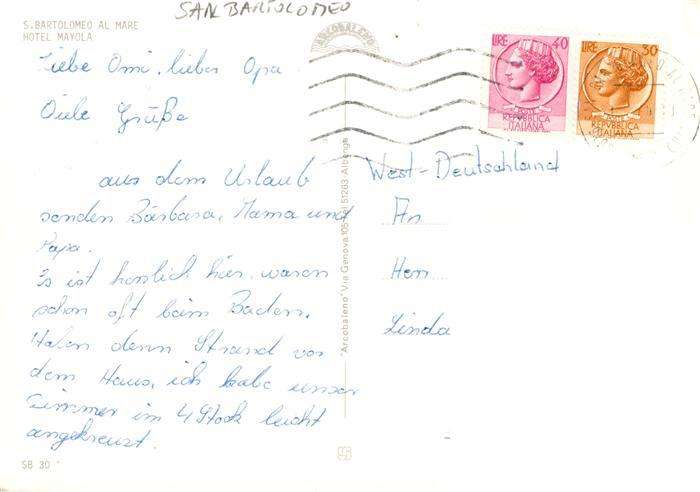 SAN BARTOLOMEO
S.BARTOLOMEO AL MARE
HOTEL MAYOLA
Liebe Omi, lieber Opa
Viele Grüße
aus dem Urlaub
senden Barbara, Mama und
Papa.
Es ist herrlich hier, waren
schon oft beim Baden.
Haben denn Strand vor
dem Haus, ich habe unser
Zimmer im 4 Stock leicht
angekreuzt.
SB 30
ARCOBALENO
"Arcobaleno" Via Genova 51263 Albenga
LIRE 40
POSTE
REPVBBLICA
ITALIANA
LIRE 30
POSTE
REPVBBLICA
ITALIANA
West-Deutschland
An
Herr
Linda